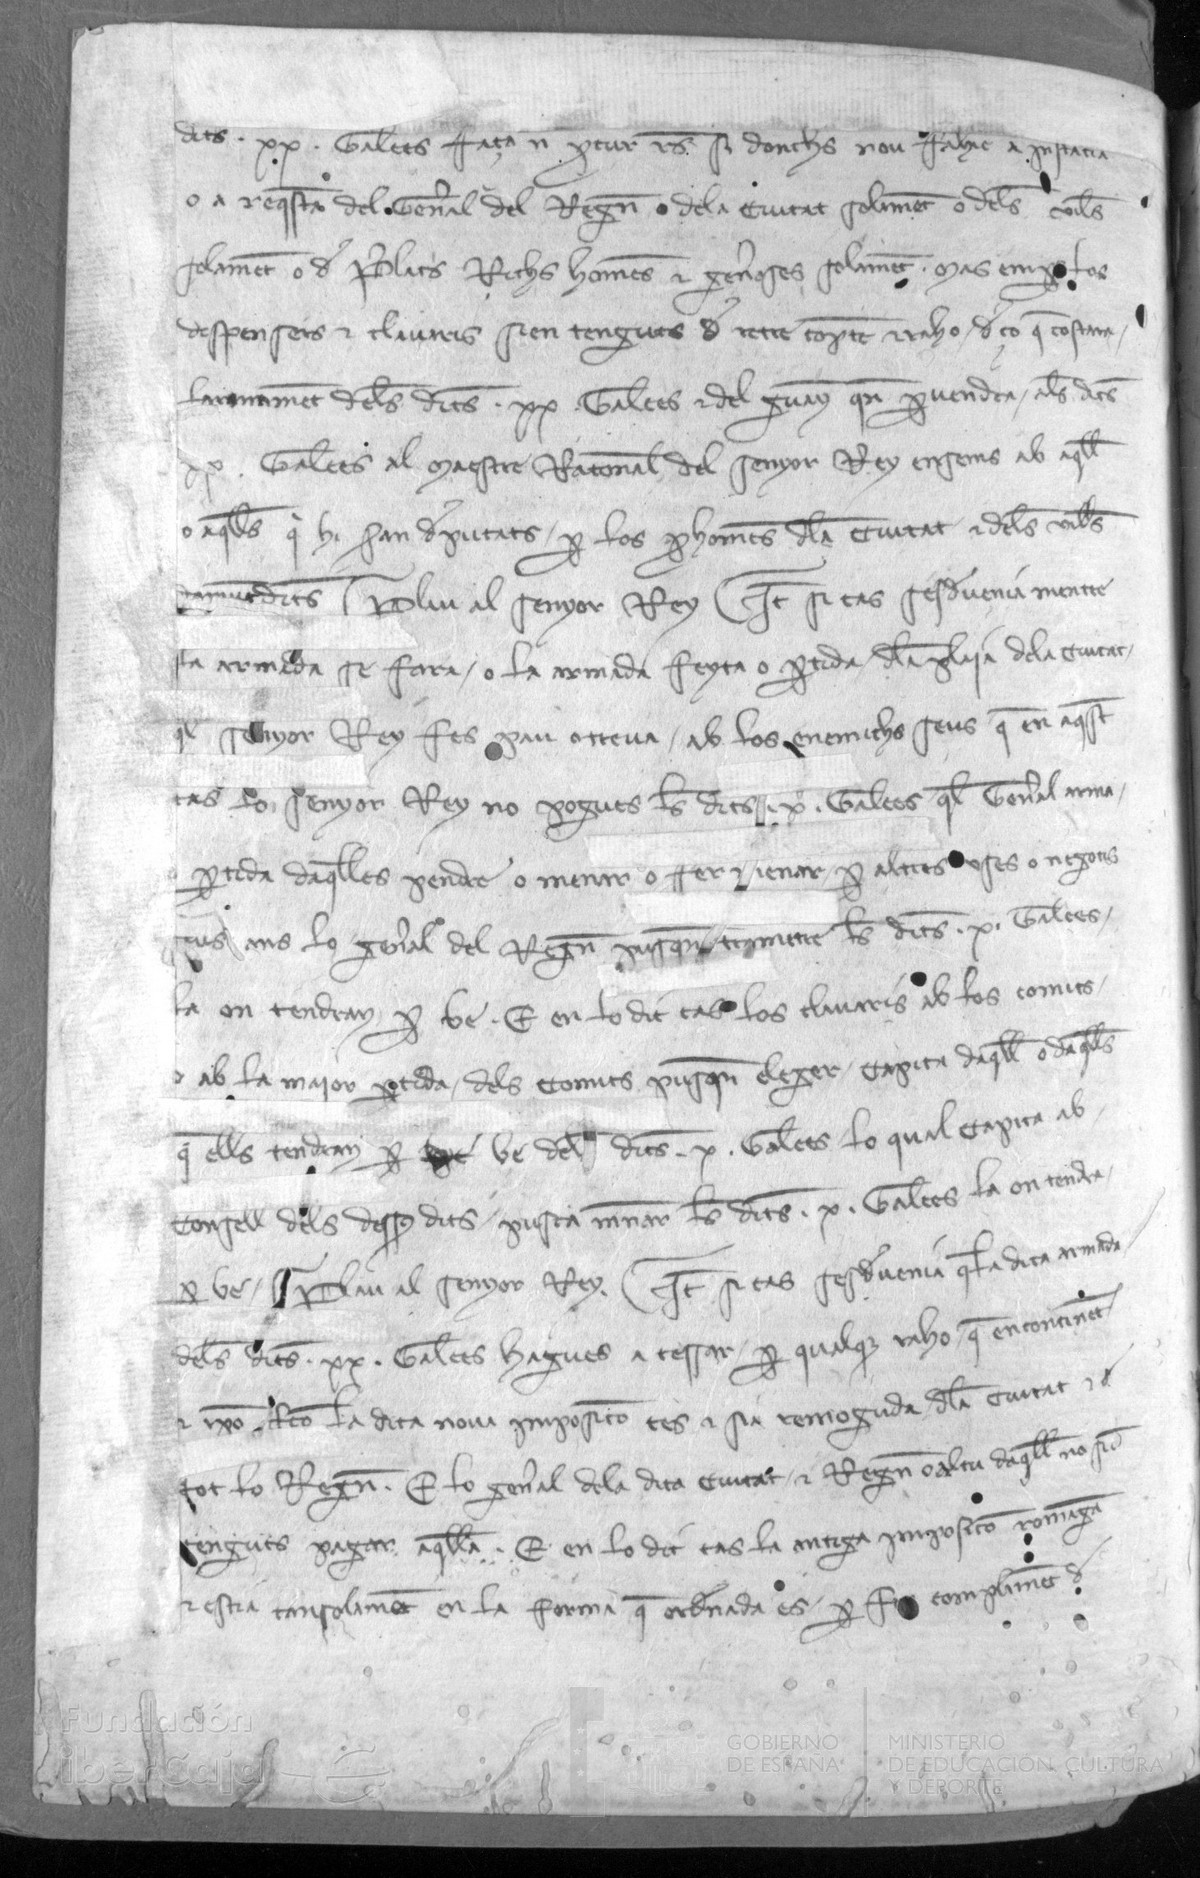 dits . xx . Galees ffaça n ptur res si donchs nou ffahie a instacia
o a reqsta del Genal del Regn o dela Ciutat solamet o dels vils
solamet o d Plats Richs homes & genoses solamet . mas empo los
despensers & clauaris sien tenguts d retre copte & raho / d ço q costara /
larmamet dels dits . xx . Galees & del guay qn puendra / als dits
xx . Galees al maestre Racional del senyor Rey ensems ab aqll
o aqlls q hi seran deputats / p los phomes dla Ciutat & dels vills
damutdits Plau al senyor Rey It si cas sesdeuenia mentre
sta armada se fara / o la armada feyta o ptida / dla plaja dela Ciutat /
ql senyor Rey fes pau o treua / ab los enemichs seus q en aqst
cas lo senyor Rey no pogues ls dits . x . Galees ql Genal arma /
o ptida daqlles pendre o menar o ffer menar / p altres coses o negocis
seus ans lo genal del Regn pusqn trametre ls dits . x . Galees /
la on tendran p be . E en lo dit cas los clauaris ab los comits /
o ab la maior ptida / dels Comits pusqn eleger / Capita daqll o daqlls
q ells tendran p be dels dits . x . Galees lo qual Capita ab /
Consell dels dess dits / pusca mnar ls dits . x . Galees la on tendra /
p be / Plau al senyor Rey . It si cas sesdeuenia q la dita armada /
dels dits . xx . Galees hagues a cessar / p qualq raho / q encontinet
& la dita noua imposicio ces & sia remoguda dla Ciutat & d
tot lo Regn . E lo genal dela dita Ciutat / & Regn o altu daqll no sie
tenguts pagar aqlla . E en lo dit cas la antiga imposicio romaga
& estia tansolamet en la forma q ordnada es / p fer complimet d
Fundación
iberCaja
GOBIERNO
DE ESPAÑA
MINISTERIO
DE EDUCACIÓN, CULTURA
Y DEPORTE